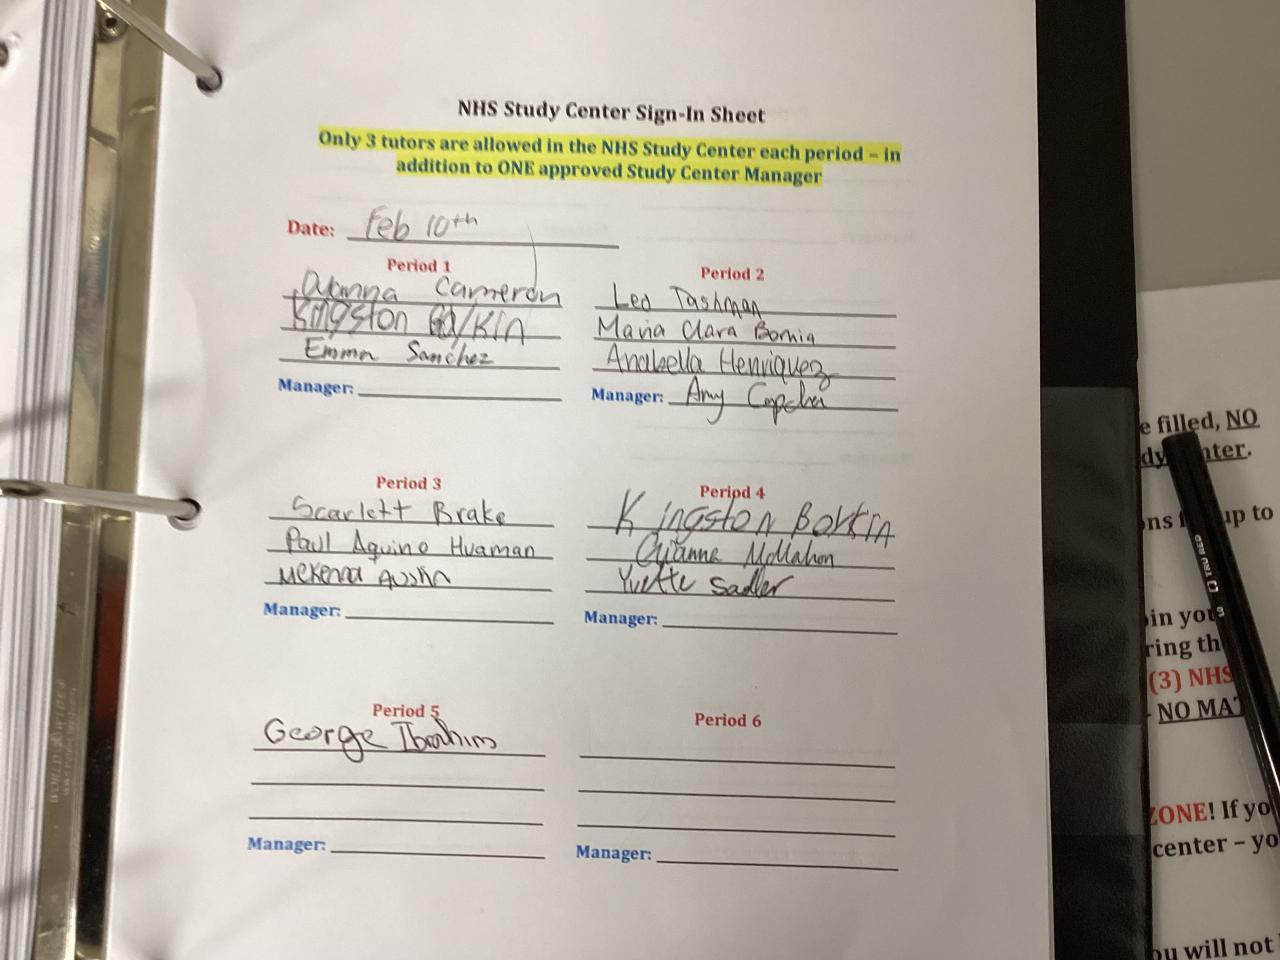 NHS Study Center Sign-In Sheet
Only 3 tutors are allowed in the NHS Study Center each period – in
addition to ONE approved Study Center Manager
Date: Feb 10th
Period 1
Cameron
Kingston
Emma Sanchez
Manager:
Period 2
Leo Tashman
Maria Clara Bornia
Anabella Henriquez
Manager: Amy
Period 3
Scarlett Brake
Paul Aquino Huaman
Mckenna Austin
Manager:
Period 4
Kingston Botkin
McMahon
Yvette Sadler
Manager:
Period 5
George Ibrahim
Manager:
Period 6
Manager:
e filled, NO
up to
in you
ring th
(3) NHS
NO MAT
ZONE! If yo
center – yo
ou will not
TRU RED